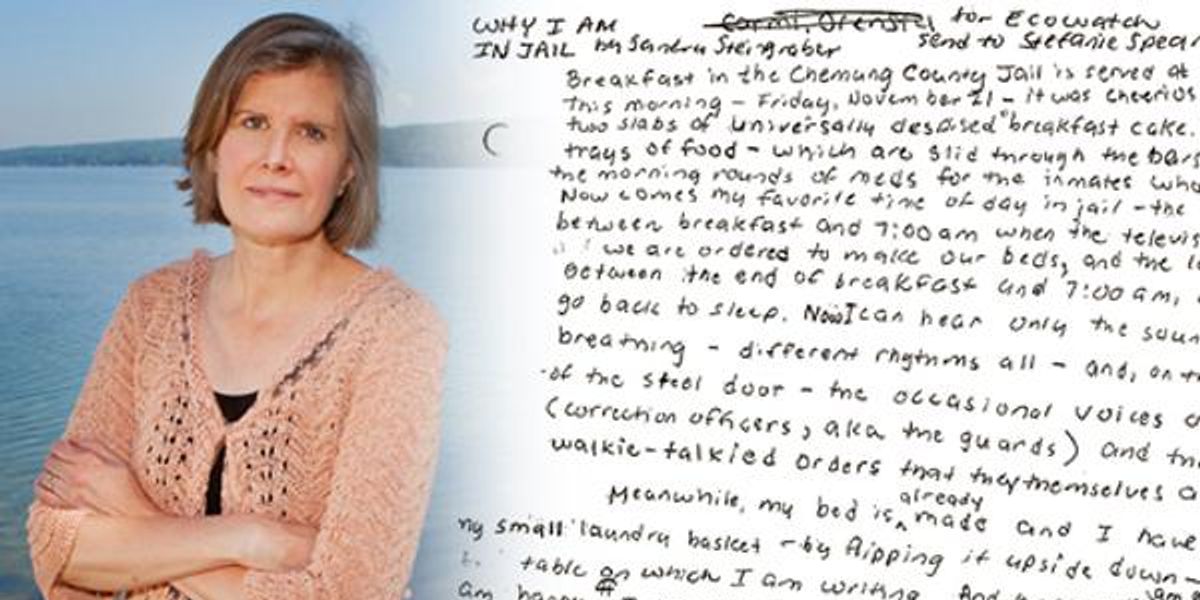 WHY I AM for Ecowatch
IN JAIL by Sandra Steingraber send to Stefanie Spear
Breakfast in the Chemung County Jail is served at
this morning – Friday, November 21 – it was cheerios
two slabs of "universally despised" breakfast cake.
trays of food – which are slid through the bars
the morning rounds of meds for the inmates who
Now comes my favorite time of day in jail – the
between breakfast and 7:00 am when the televis
we are ordered to make our beds, and the
Between the end of breakfast and 7:00 am,
go back to sleep. Now I can hear only the soun
breathing – different rhythms all – and, on
of the steel door – the occasional voices
(correction officers, aka the guards) and the
walkie-talkied orders that they themselves
already
Meanwhile, my bed is ^ made and I have
my small laundry basket – by flipping it upside down –
table on which I am writing. And
am